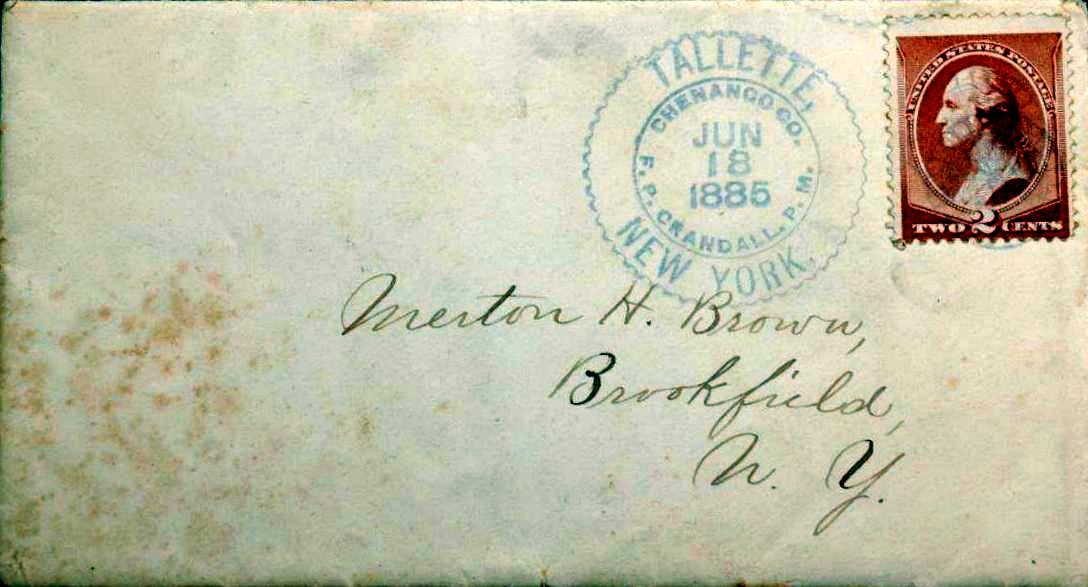 TALLETTE,
CHENANGO CO.
JUN
18
1885
F. P. CRANDALL, P. M.
NEW YORK.
UNITED STATES POSTAGE
TWO 2 CENTS
Merton H. Brown,
Brookfield,
N. Y.